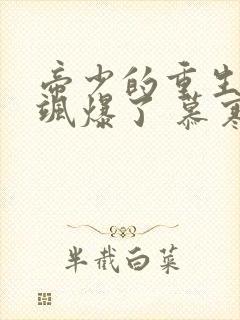 帝少的重生
飒爆了 慕寒
半截白菜